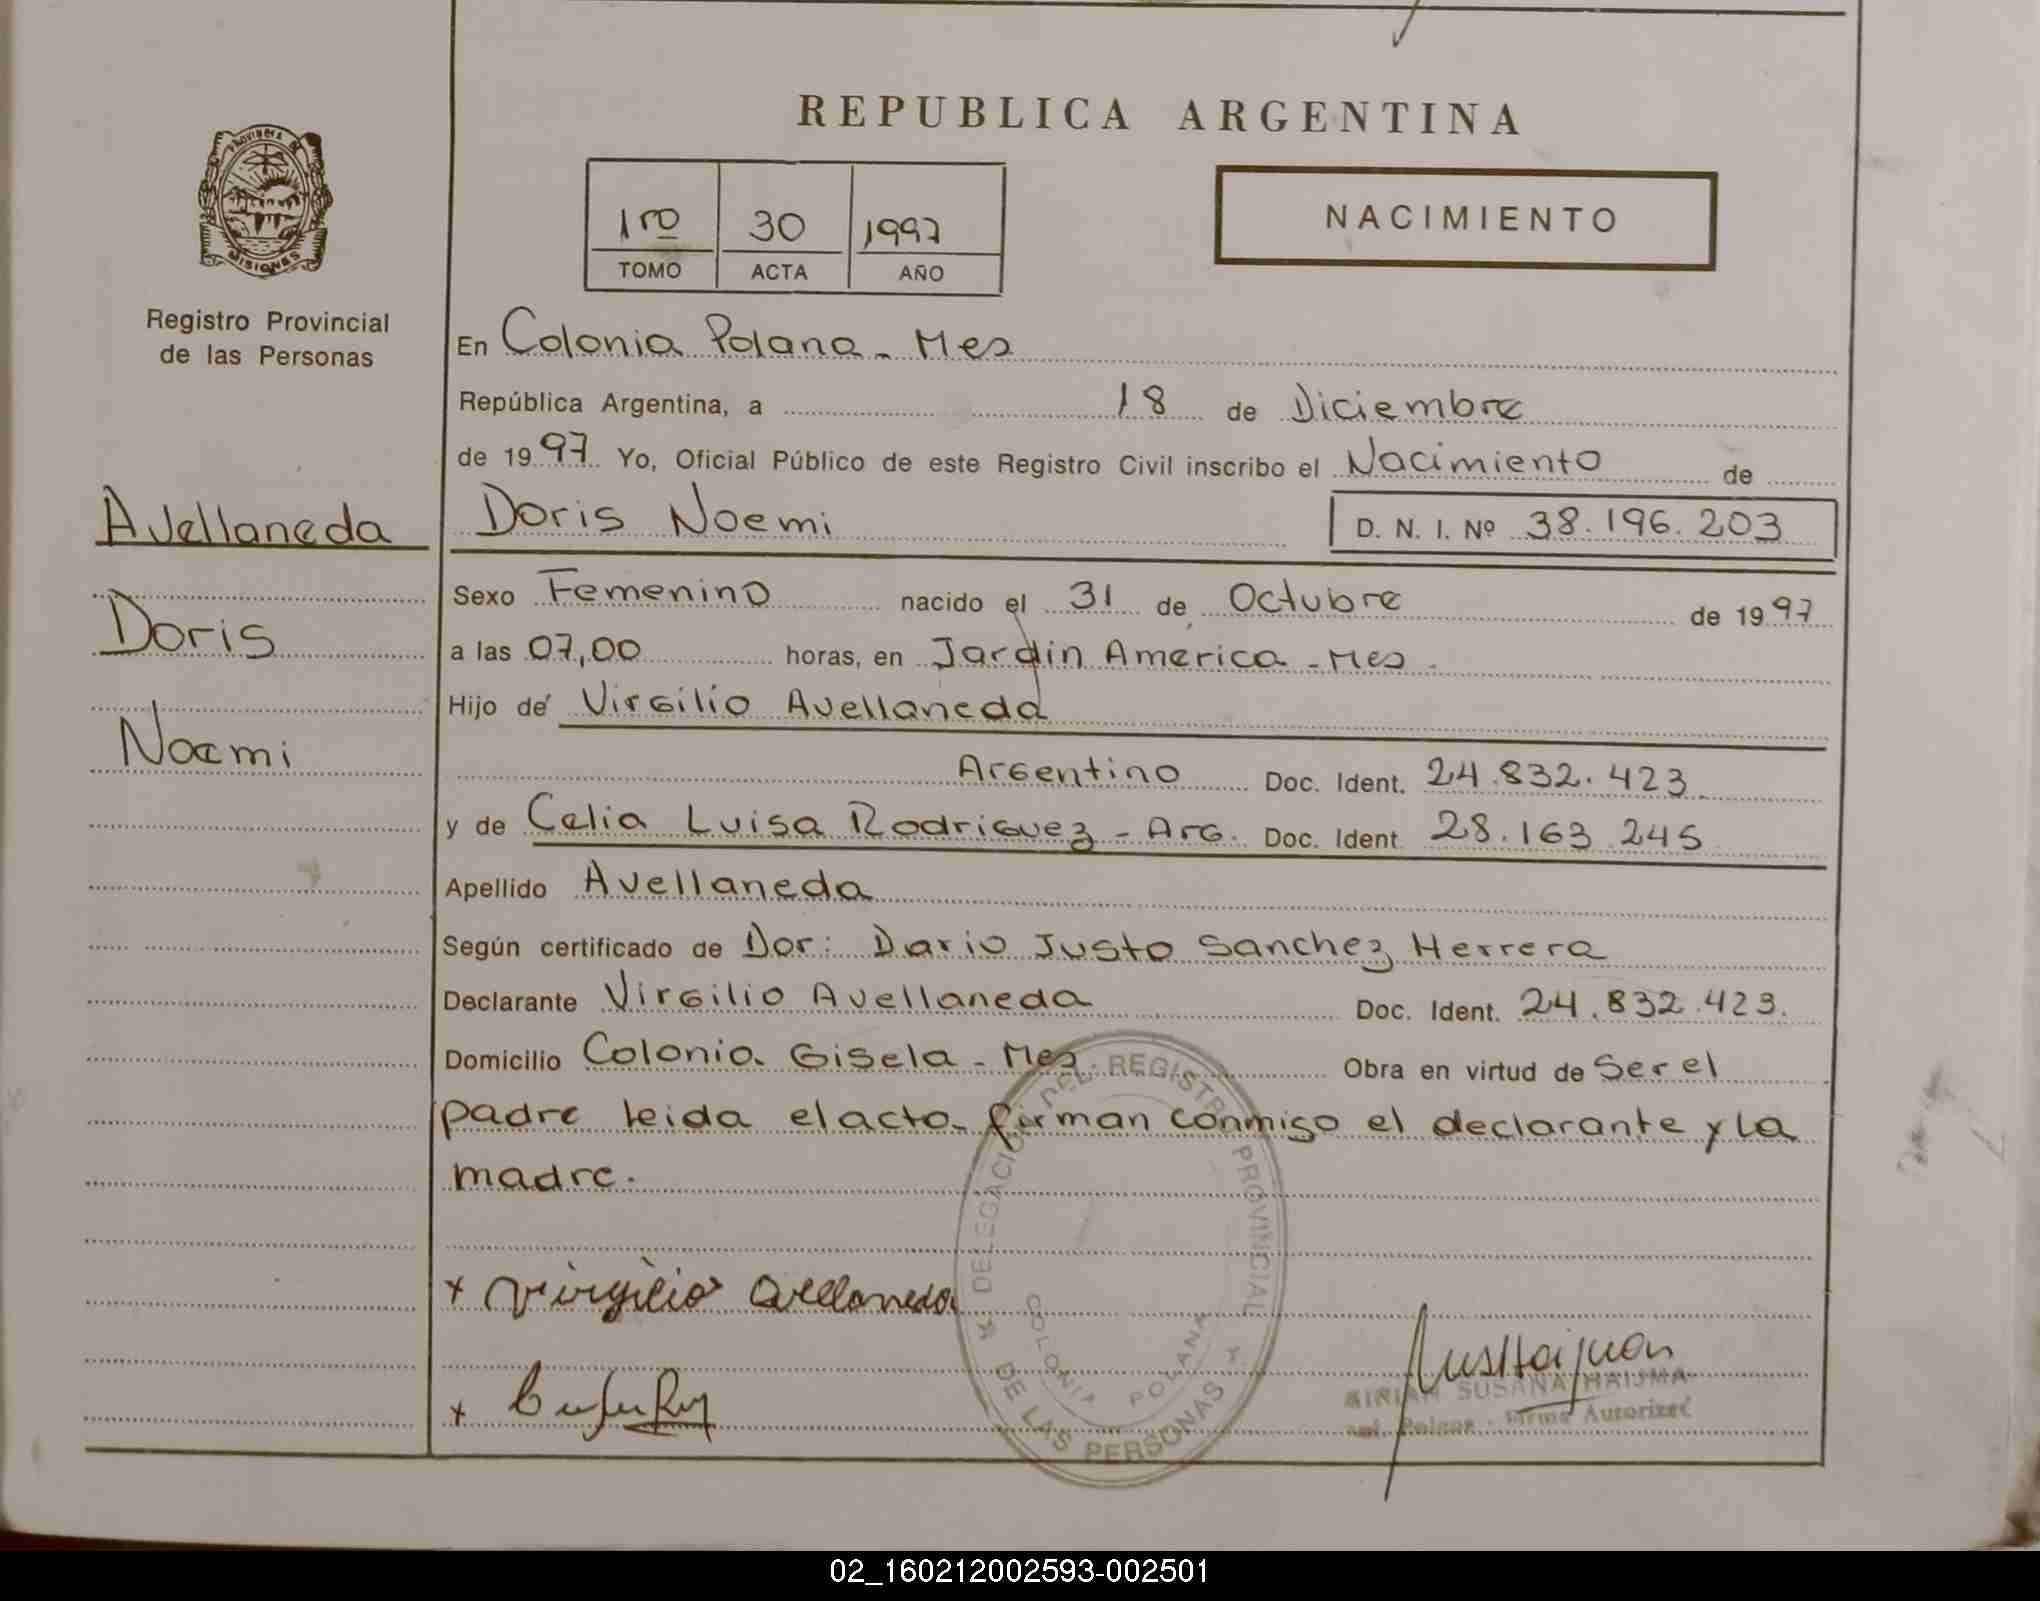 REPUBLICA ARGENTINA
PROVINCIA DE MISIONES
1ro 30 1997
TOMO ACTA AÑO
NACIMIENTO
Registro Provincial
de las Personas
En Colonia Polana - Mes
República Argentina, a 18 de Diciembre
de 1997 Yo, Oficial Público de este Registro Civil inscribo el Nacimiento de
Avellaneda
Doris Noemi D. N. I. Nº 38.196.203
Sexo Femenino nacido el 31 de Octubre de 1997
Doris
a las 07,00 horas, en Jardin America - Mes -
Hijo de Virgilio Avellaneda
Noemi
Argentino Doc. Ident. 24.832.423
y de Celia Luisa Rodriguez - Arg. Doc. Ident. 28.163.245
Apellido Avellaneda
Según certificado de Dor: Dario Justo Sanchez Herrera
Declarante Virgilio Avellaneda Doc. Ident. 24.832.423.
Domicilio Colonia Gisela - Mes Obra en virtud de Ser el
padre leida el acta firman conmigo el declarante y la
madre.
DELEGACION DEL REGISTRO PROVINCIAL DE LAS PERSONAS
COLONIA POLANA
x Virgilio Avellaneda
x
MIRIAN SUSANA HAIJMA
Col. Polana - Firma Autorizad
02_160212002593-002501